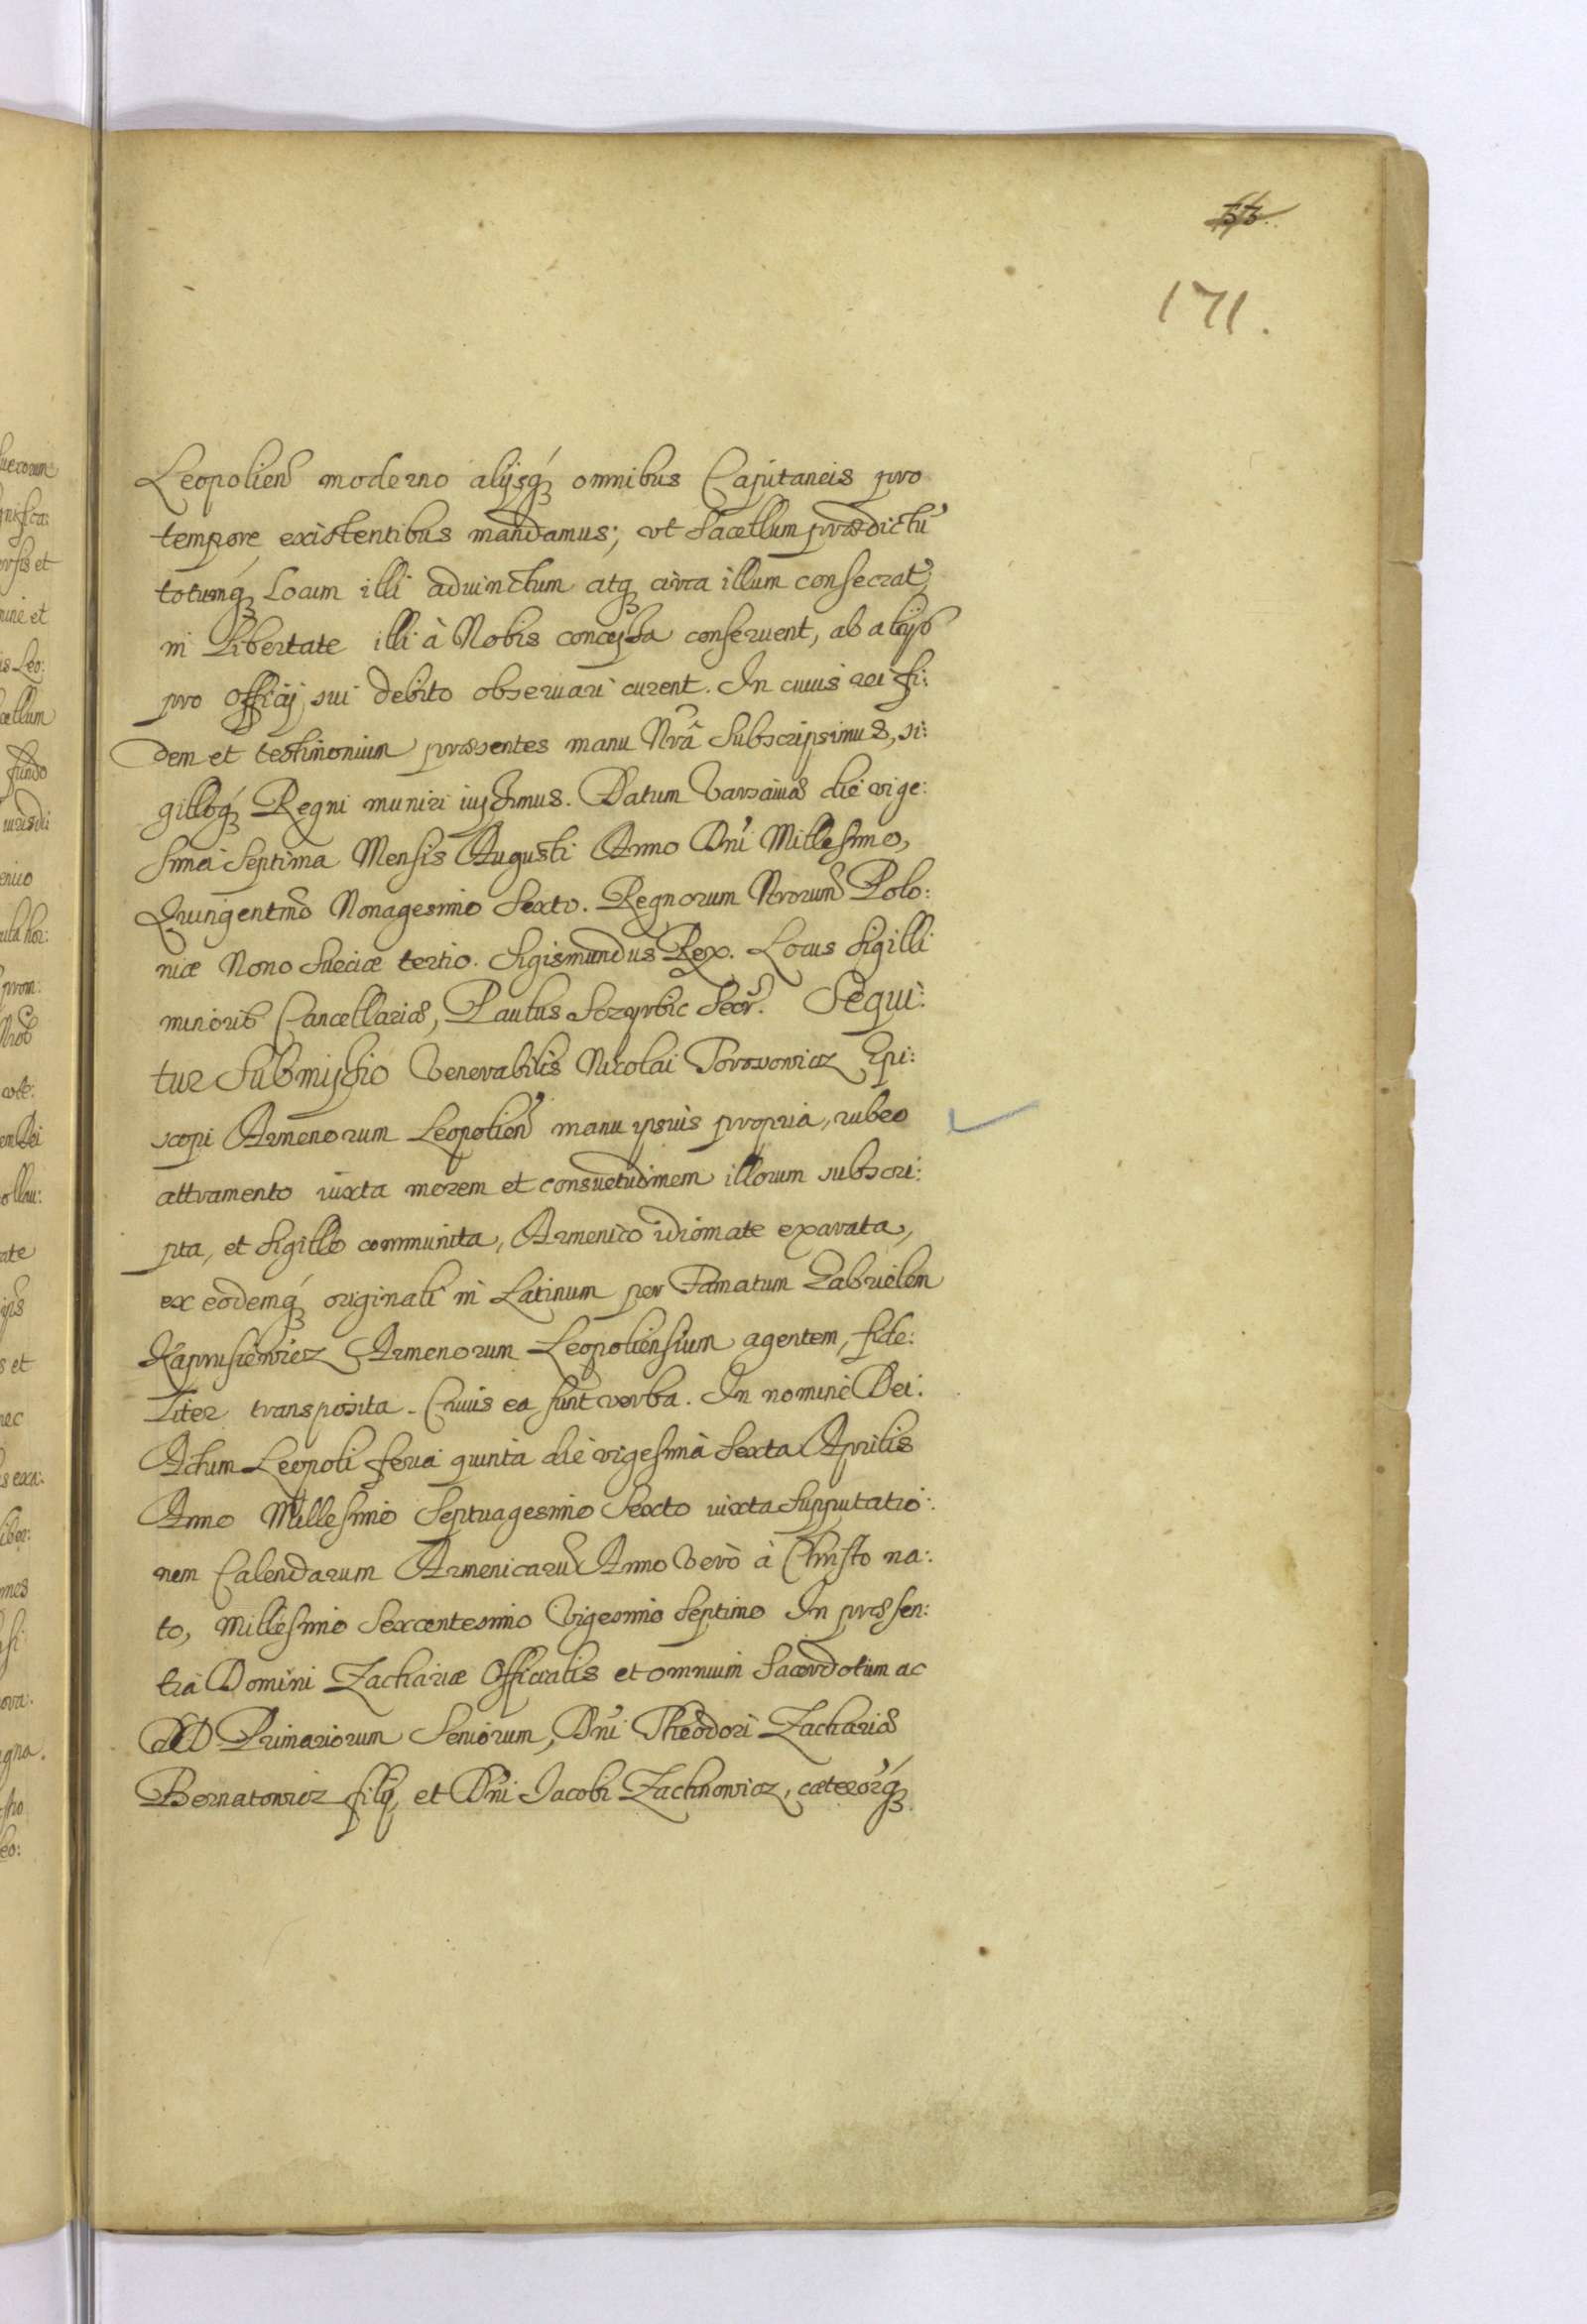 53.
171.
Leopolien moderno alijsq́ omnibus Capitaneis pro
tempore existentibus mandamus; vt Sacellum prædictũ
totumq́ Locum illi adiunctum atq circa illum consecrat
in Libertate illi à Nobis concessa conseruent, ab alijs
pro Officij sui debito obseruari curent. In cuius rei fi:
dem et testimonium præsentes manu Nrã Subscripsimus, si:
gilloq́ Regni muniri iussimus. Datum Varsauiæ die vige:
sima Septima Mensis Augusti Anno Dni Millesimo,
Quingentmo Nonagesimo Sexto. Regnorum Nrorum Polo:
niæ Nono Sueciæ tertio. Sigismundus Rex. Locus Sigilli
minoris Cancellariæ, Paulus Sczyrbic Secr. Sequi:
tur Submissio Venerabilis Nicolai Torosowicz Epi:
scopi Armenorum Leopolien manu ipsius propria, rubeo
attramento iuxta morem et consuetudinem illorum subscri:
pta, et Sigillo communita, Armenico idiomate exarata,
ex eodemq́ originali in Latinum per Famatum Gabrielem
Kaprusiewicz Armenorum Leopoliensium agentem, fide:
liter transposita. Cuius ea sunt verba. In nomine Dei.
Actum Leopoli feria quinta die vigesima Sexta Aprilis
Anno Millesimo Septuagesimo Sexto iuxta Supputatio:
nem Calendarum Armenicarũ Anno Verò à Christo na:
to, Millesimo Sexcentesimo Vigesimo Septimo In præsen:
tia Domini Zachariæ Officialis et omnium Sacerdotum ac
DD Primariorum Seniorum, Dni Theodori Zachariæ
Bernatowicz filij, et Dni Iacobi Zachnowicz, cæterorq́